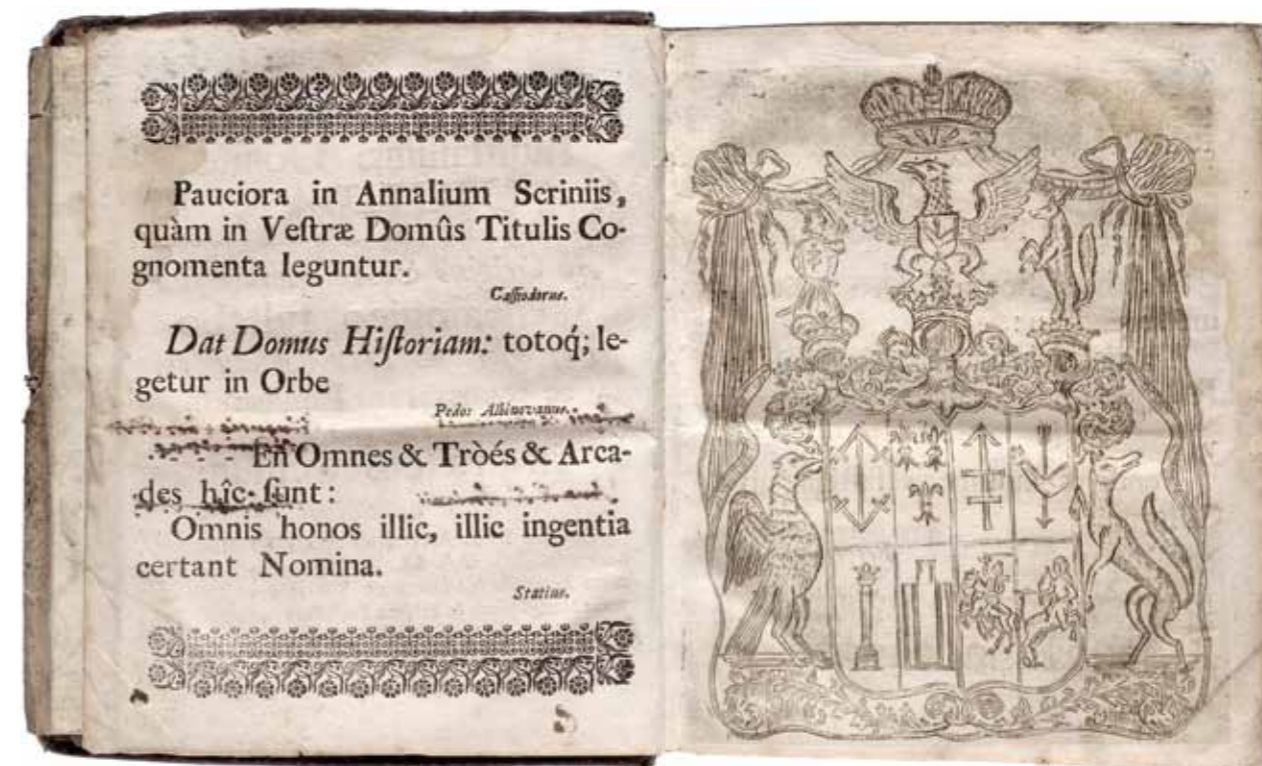 Pauciora in Annalium Scriniis,
quàm in Veſtræ Domûs Titulis Co-
gnomenta leguntur.
Caſſiodorus.
Dat Domus Hiſtoriam: totoq́; le-
getur in Orbe
Pedo: Albinovanus.
En Omnes & Tròés & Arca-
des hîc ſunt:
Omnis honos illic, illic ingentia
certant Nomina.
Statius.